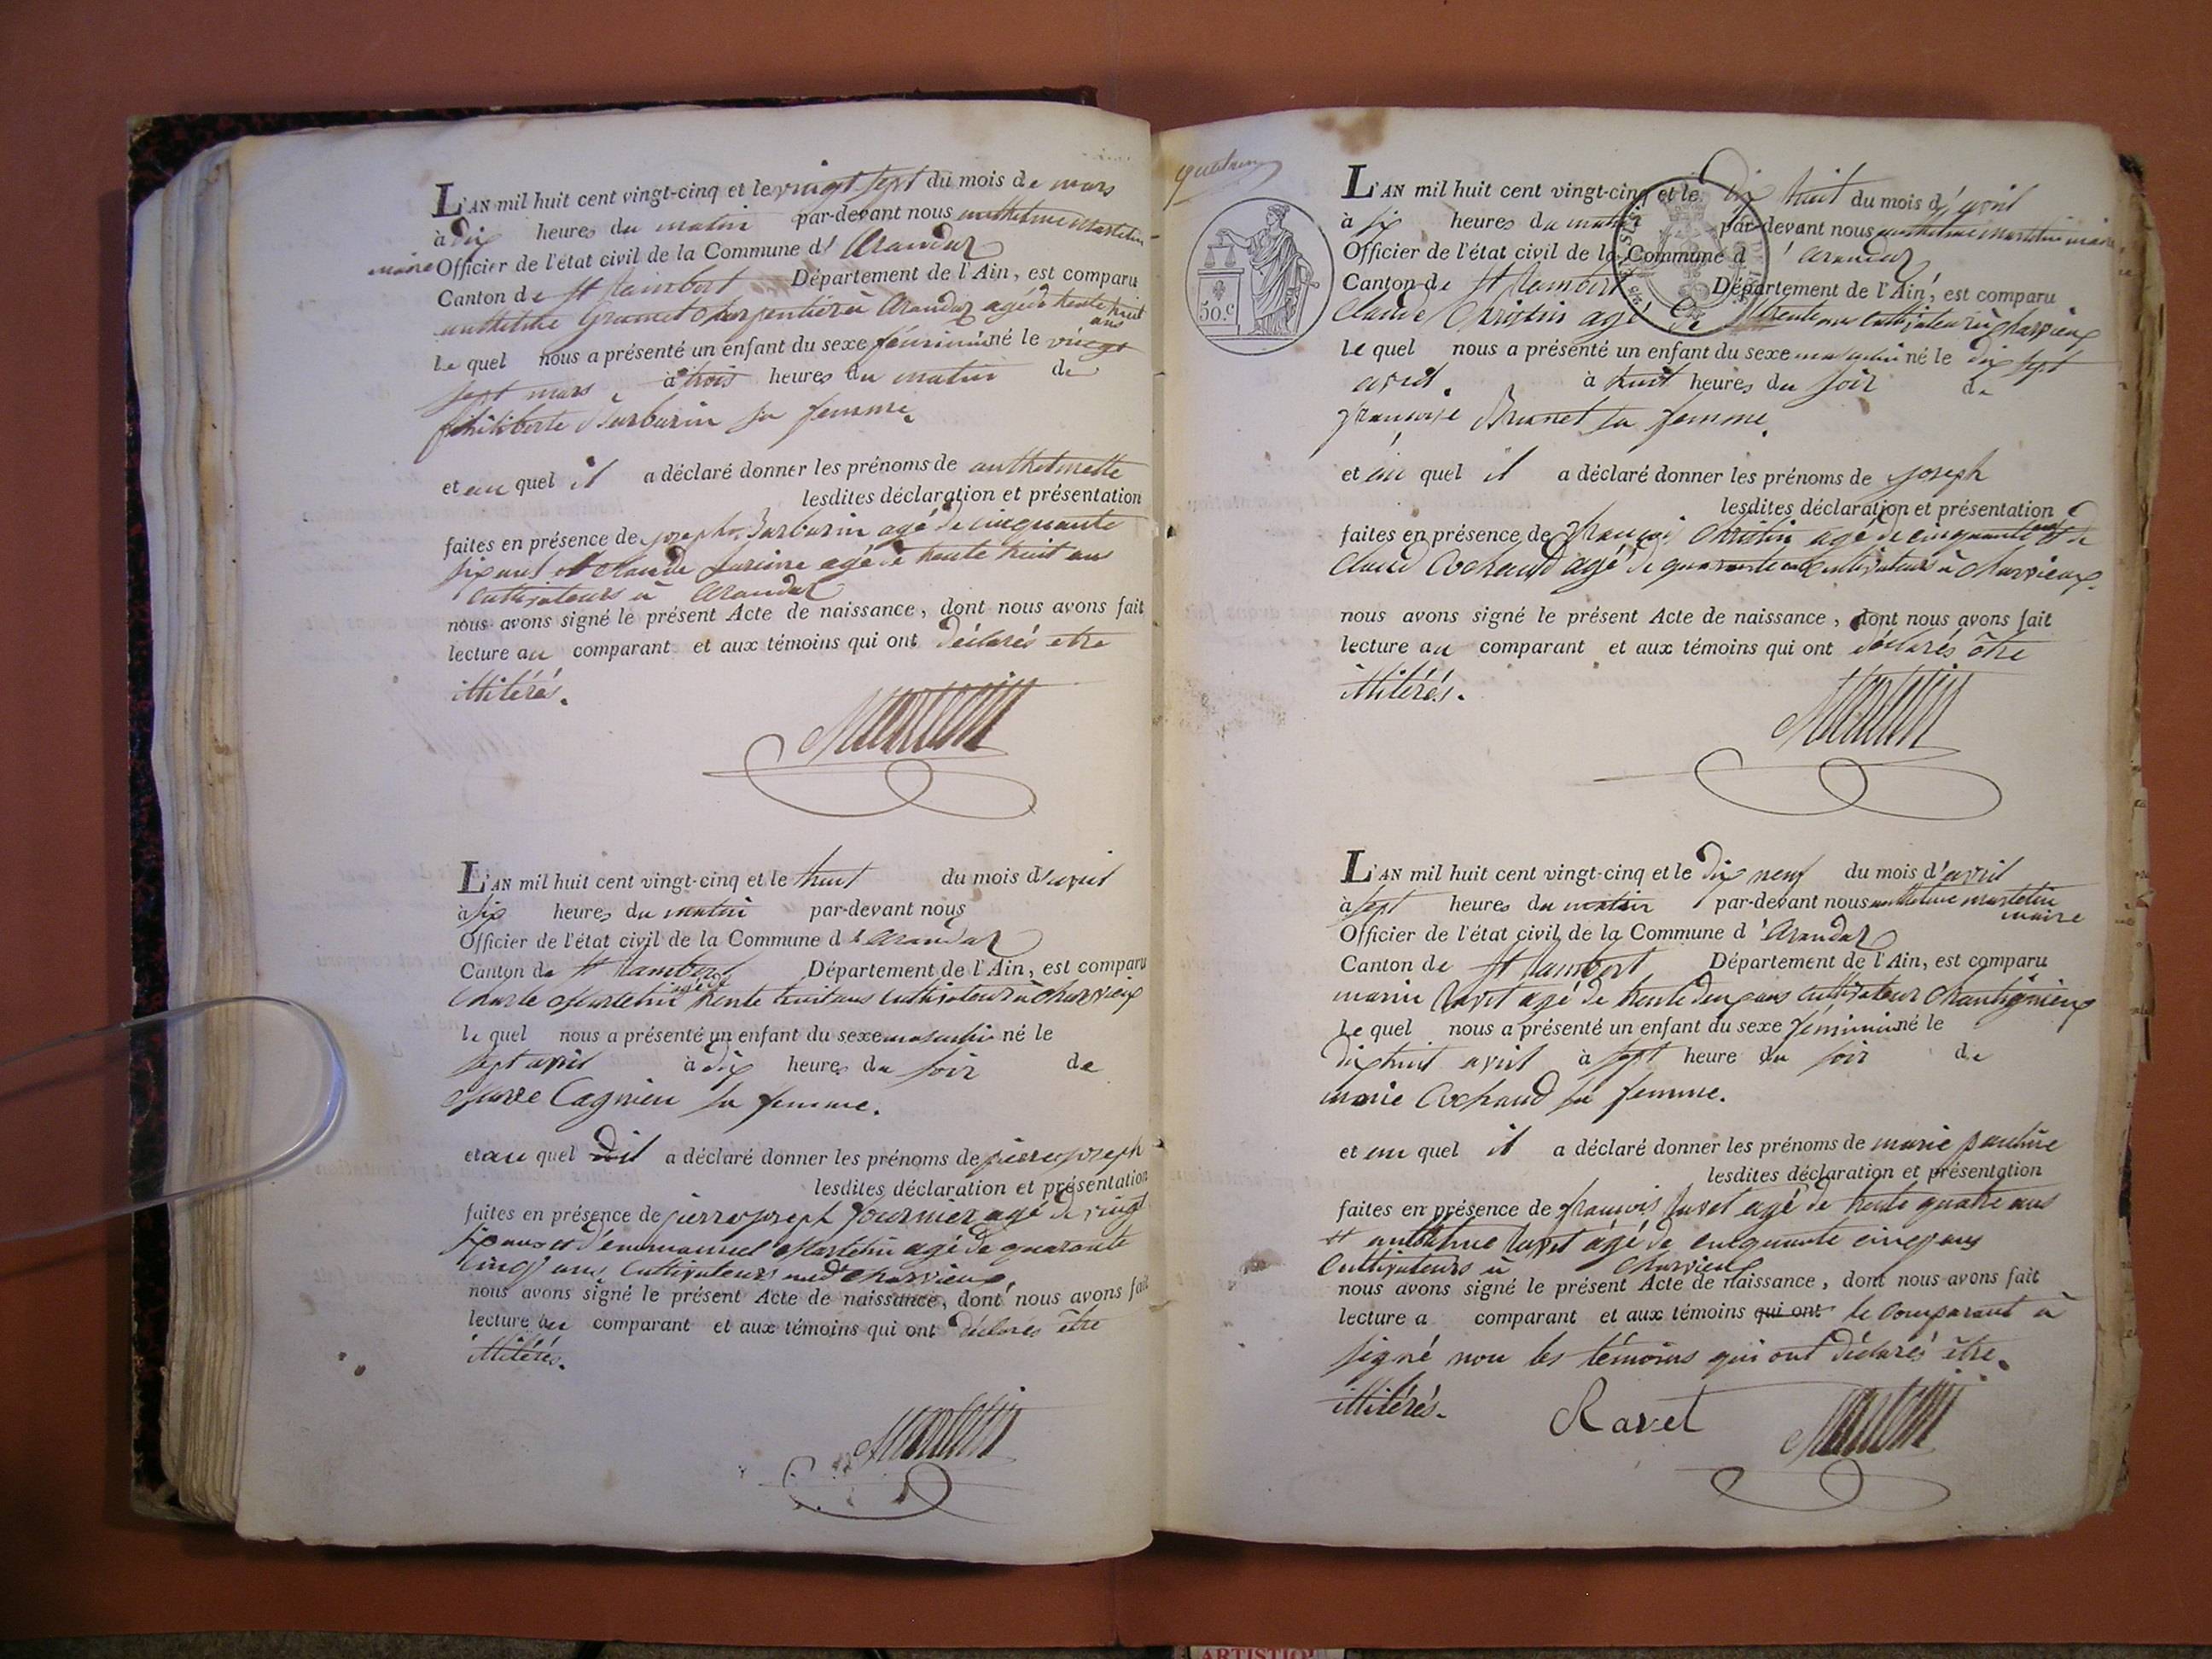 L'AN mil huit cent vingt-cinq et le vingt sept du mois de mars
à dix heures du matin par-devant nous anthelme Martelin
maire Officier de l'état civil de la Commune d' Arandaz
Canton de St Rambert Département de l'Ain, est comparu
anthelme Grumet charpentier à Arandaz agé de trente huit
ans
Le quel nous a présenté un enfant du sexe féminin né le vingt
sept mars à trois heures du matin de
philiberte Barbarin sa femme
et au quel il a déclaré donner les prénoms de anthelmette
lesdites déclaration et présentation
faites en présence de joseph Barbarin agé de cinquante
six ans et claude agé de trente huit ans
cultivateurs à Arandaz
nous avons signé le présent Acte de naissance, dont nous avons fait
lecture au comparant et aux témoins qui ont déclarés etre
illitérés.
Martelin
L'AN mil huit cent vingt-cinq et le huit du mois d'avril
à six heures du matin par-devant nous
Officier de l'état civil de la Commune d'Arandaz
Canton de St Rambert Département de l'Ain, est comparu
Charle Martelin agé de trente huit ans cultivateur à charvieux
le quel nous a présenté un enfant du sexe masculin né le
sept avril à dix heures du soir de
Marie Cagnieu sa femme.
et au quel il a déclaré donner les prénoms de pierre joseph
lesdites déclaration et présentation
faites en présence de pierre joseph fournier agé de vingt
six ans et d'emmanuel Martelin agé de quarante
cinq ans, Cultivateurs charvieux,
nous avons signé le présent Acte de naissance, dont nous avons fait
lecture au comparant et aux témoins qui ont déclarés être
illitérés.
Martelin
50.c
L'AN mil huit cent vingt-cinq et le dix huit du mois d'avril
à six heures du matin par-devant nous anthelme Martelin maire
Officier de l'état civil de la Commune d'Arandaz
Canton de St Rambert Département de l'Ain, est comparu
Claude Christin agé de trente ans cultivateur à charvieux
le quel nous a présenté un enfant du sexe masculin né le dix sept
avril. à huit heures du soir de
françoise Brunet sa femme.
et au quel il a déclaré donner les prénoms de joseph
lesdites déclaration et présentation
faites en présence de françois Christin agé de cinquante ans et de
Claude Cochaud agé de quarante ans cultivateurs à charvieux.
nous avons signé le présent Acte de naissance, dont nous avons fait
lecture au comparant et aux témoins qui ont déclarés être
illitérés.
Martelin
L'AN mil huit cent vingt-cinq et le dix neuf du mois d'avril
à sept heures du matin par-devant nous anthelme martelin
maire
Officier de l'état civil de la Commune d'Arandaz
Canton de St Rambert Département de l'Ain, est comparu
marin Ravet agé de trente deux ans cultivateur
Le quel nous a présenté un enfant du sexe féminin né le
dix huit avril à sept heure du soir de
marie Cochaud sa femme.
et au quel il a déclaré donner les prénoms de marie pauline
lesdites déclaration et présentation
faites en présence de françois Ravet agé de trente quatre ans
et anthelme Ravet agé de cinquante cinq ans
Cultivateurs à Charvieux
nous avons signé le présent Acte de naissance, dont nous avons fait
lecture a comparant et aux témoins qui ont le comparant à
signé non les témoins qui ont déclarés être.
illitérés. Ravet Martelin
ARTISTIQUE